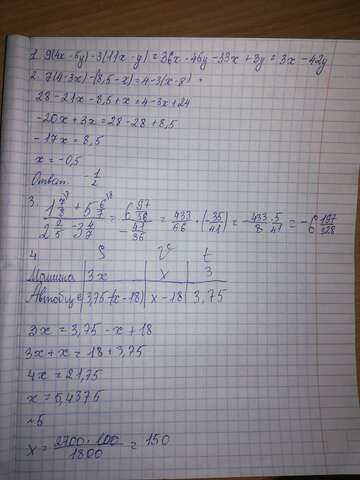 1. 9(4x-5y)-3(11x-y)=36x-45y-33x+3y=3x-42y
2. 7(4-3x)-(8,5-x)=4-3(x-8)
28-21x-8,5+x=4-3x+24
-20x+3x=28-28+8,5
-17x=8,5
x=-0,5
Ответ -1/2
3. (1 7/8 + 5 6/7)/(2 2/5 - 3 4/7) = (6 97/56)/(-41/35) = 433/56 · (-35/41) = -(433·5)/(8·41) = -6 197/328
4. S V t
Машина 3x x 3
Автобус 3,75·(x-18) x-18 3,75
3x=3,75-x+18
3x+x=18+3,75
4x=21,75
x=5,4375
~5
x=(2700·100)/1800=150